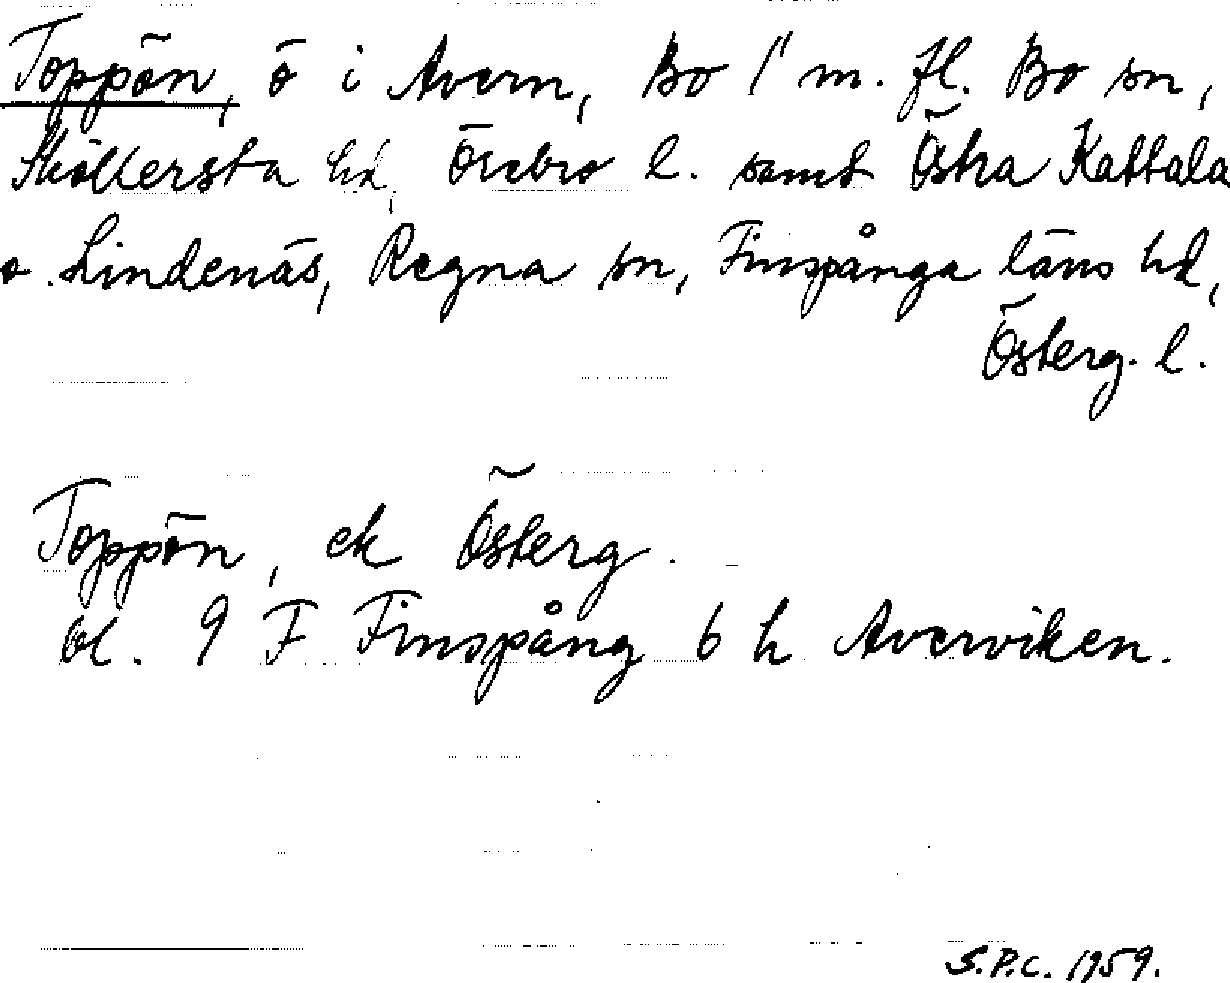 Toppön, ö i Avern, Bo 1¹ m. fl. Bo sn,
Sköllersta hd, Örebro l. samt Östra Kattala
o. Lindenäs, Regna sn, Finspånga läns hd,
Österg. l.
Toppön, ek Österg.
bl. 9 F Finspång 6 h Averviken.
S.P.C. 1959.